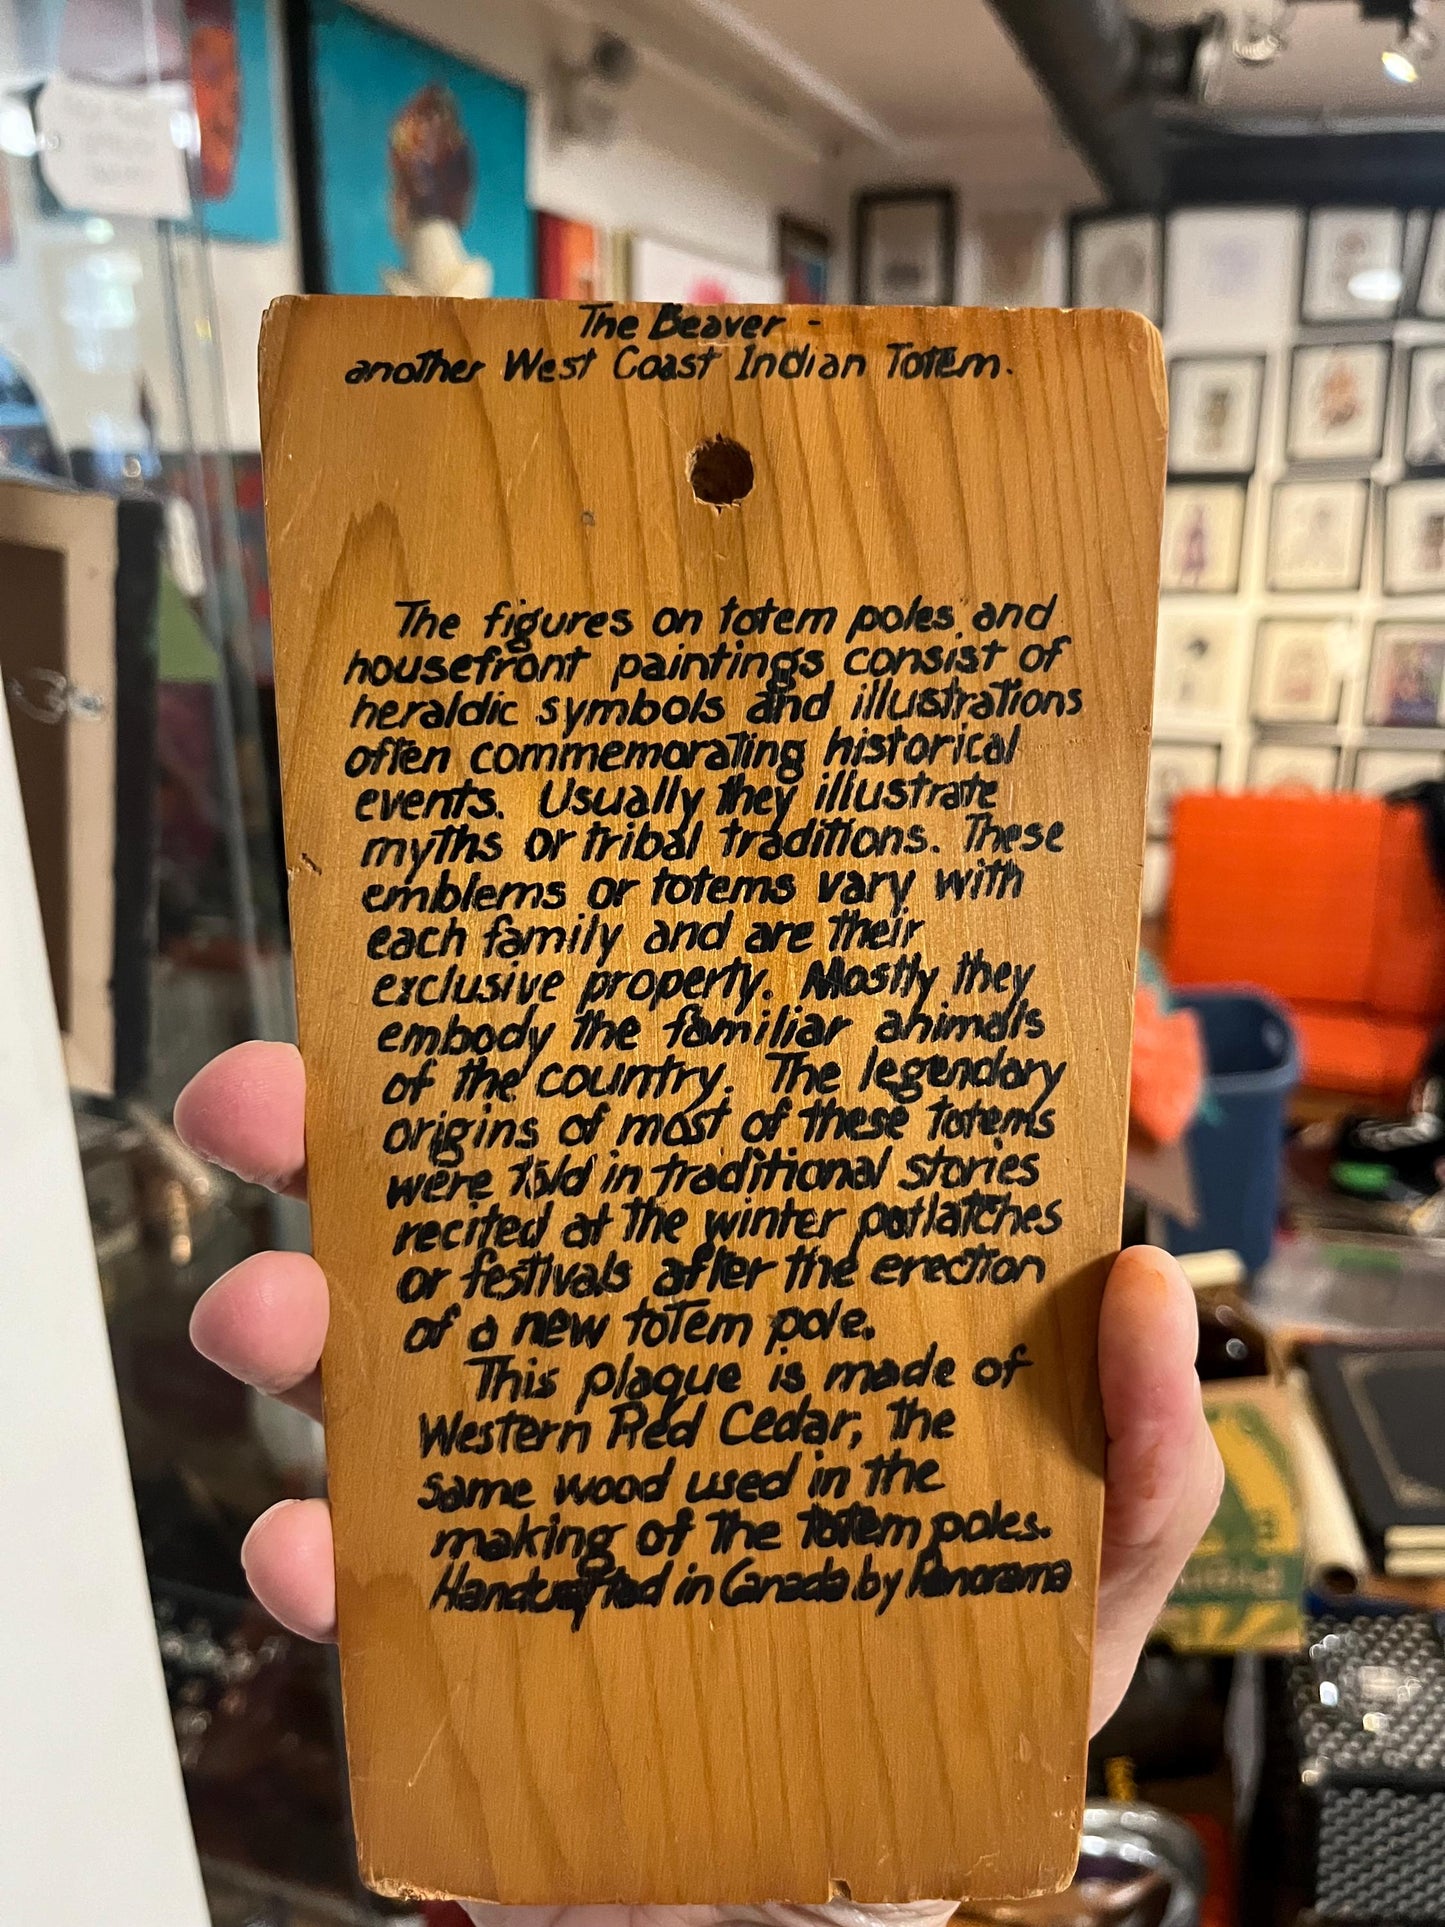 The Beaver -
another West Coast Indian Totem.
The figures on totem poles, and
housefront paintings consist of
heraldic symbols and illustrations
often commemorating historical
events. Usually they illustrate
myths or tribal traditions. These
emblems or totems vary with
each family and are their
exclusive property. Mostly they
embody the familiar animals
of the country. The legendary
origins of most of these totems
were told in traditional stories
recited at the winter potlatches
or festivals after the erection
of a new totem pole.
This plaque is made of
Western Red Cedar, the
same wood used in the
making of the totem poles.
Handcrafted in Canada by Panorama